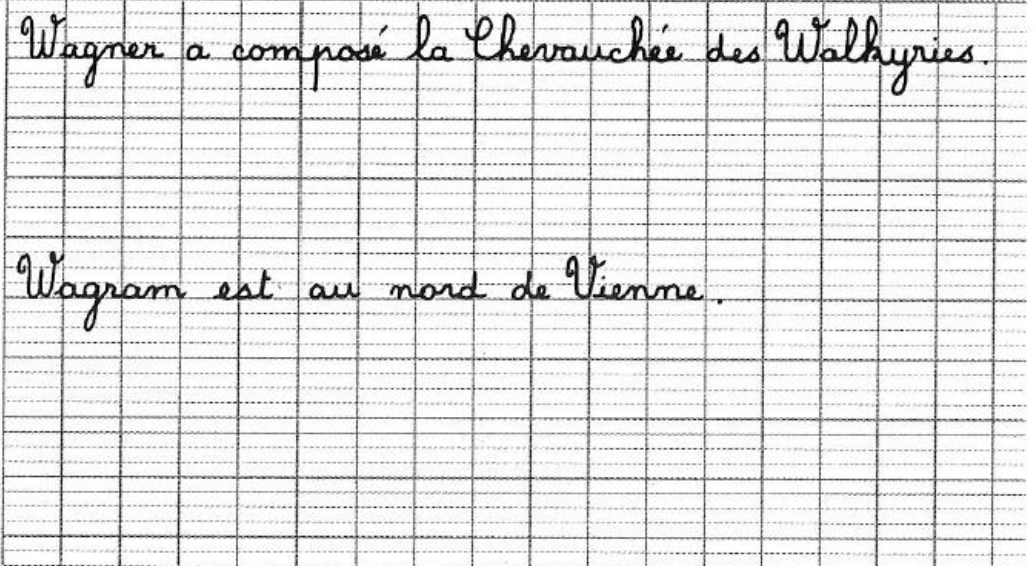 Wagner a composé la Chevauchée des Walkyries.
Wagram est au nord de Vienne.